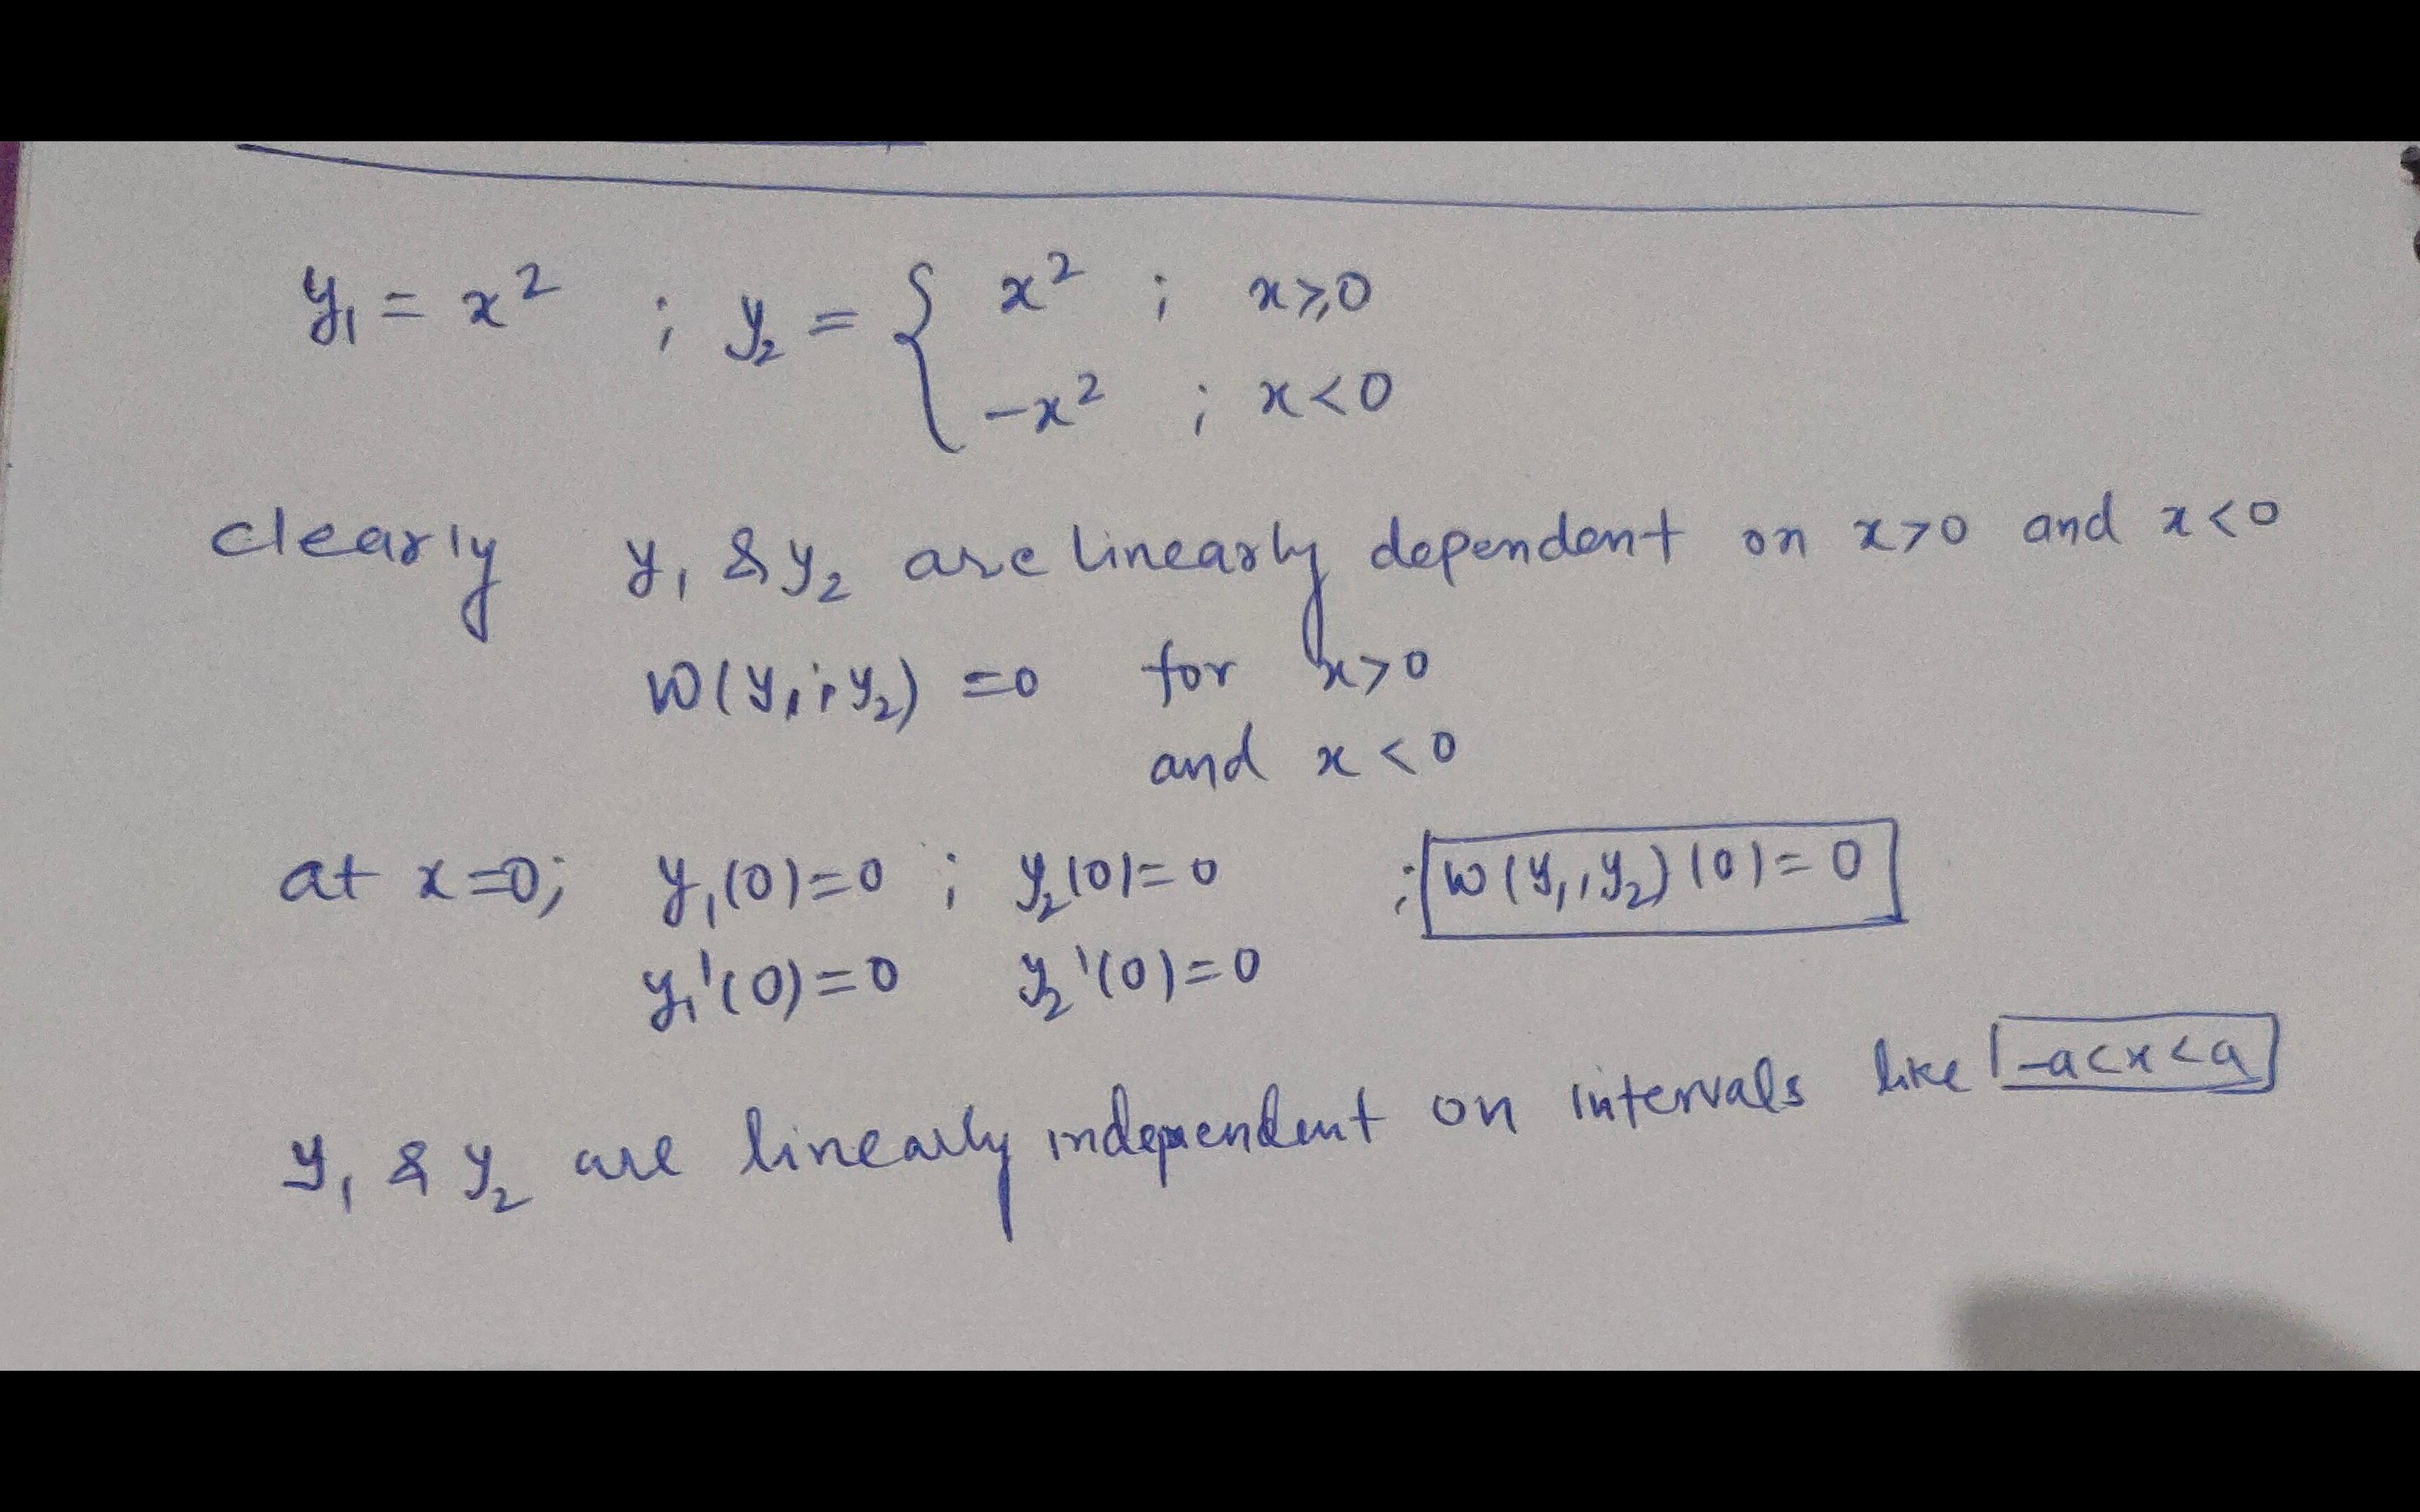 y₁ = x² ; y₂ = { x² ; x ≥ 0
-x² ; x < 0
clearly y₁ & y₂ are linearly dependent on x > 0 and x < 0
W(y₁, y₂) = 0 for x > 0
and x < 0
at x = 0; y₁(0) = 0 ; y₂(0) = 0 ; W(y₁, y₂)(0) = 0
y₁'(0) = 0 y₂'(0) = 0
y₁ & y₂ are linearly independent on intervals like -a < x < a